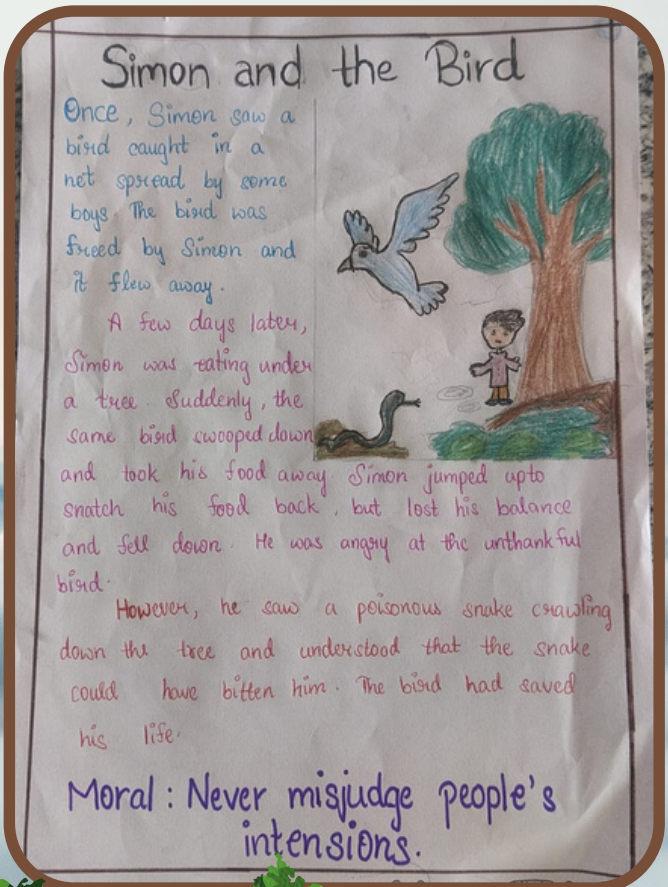 Simon and the Bird
Once, Simon saw a
bird caught in a
net spread by some
boys. The bird was
freed by Simon and
it flew away.
A few days later,
Simon was eating under
a tree. Suddenly, the
same bird swooped down
and took his food away. Simon jumped upto
snatch his food back, but lost his balance
and fell down. He was angry at the unthankful
bird.
However, he saw a poisonous snake crawling
down the tree and understood that the snake
could have bitten him. The bird had saved
his life.
Moral : Never misjudge people's
intensions.